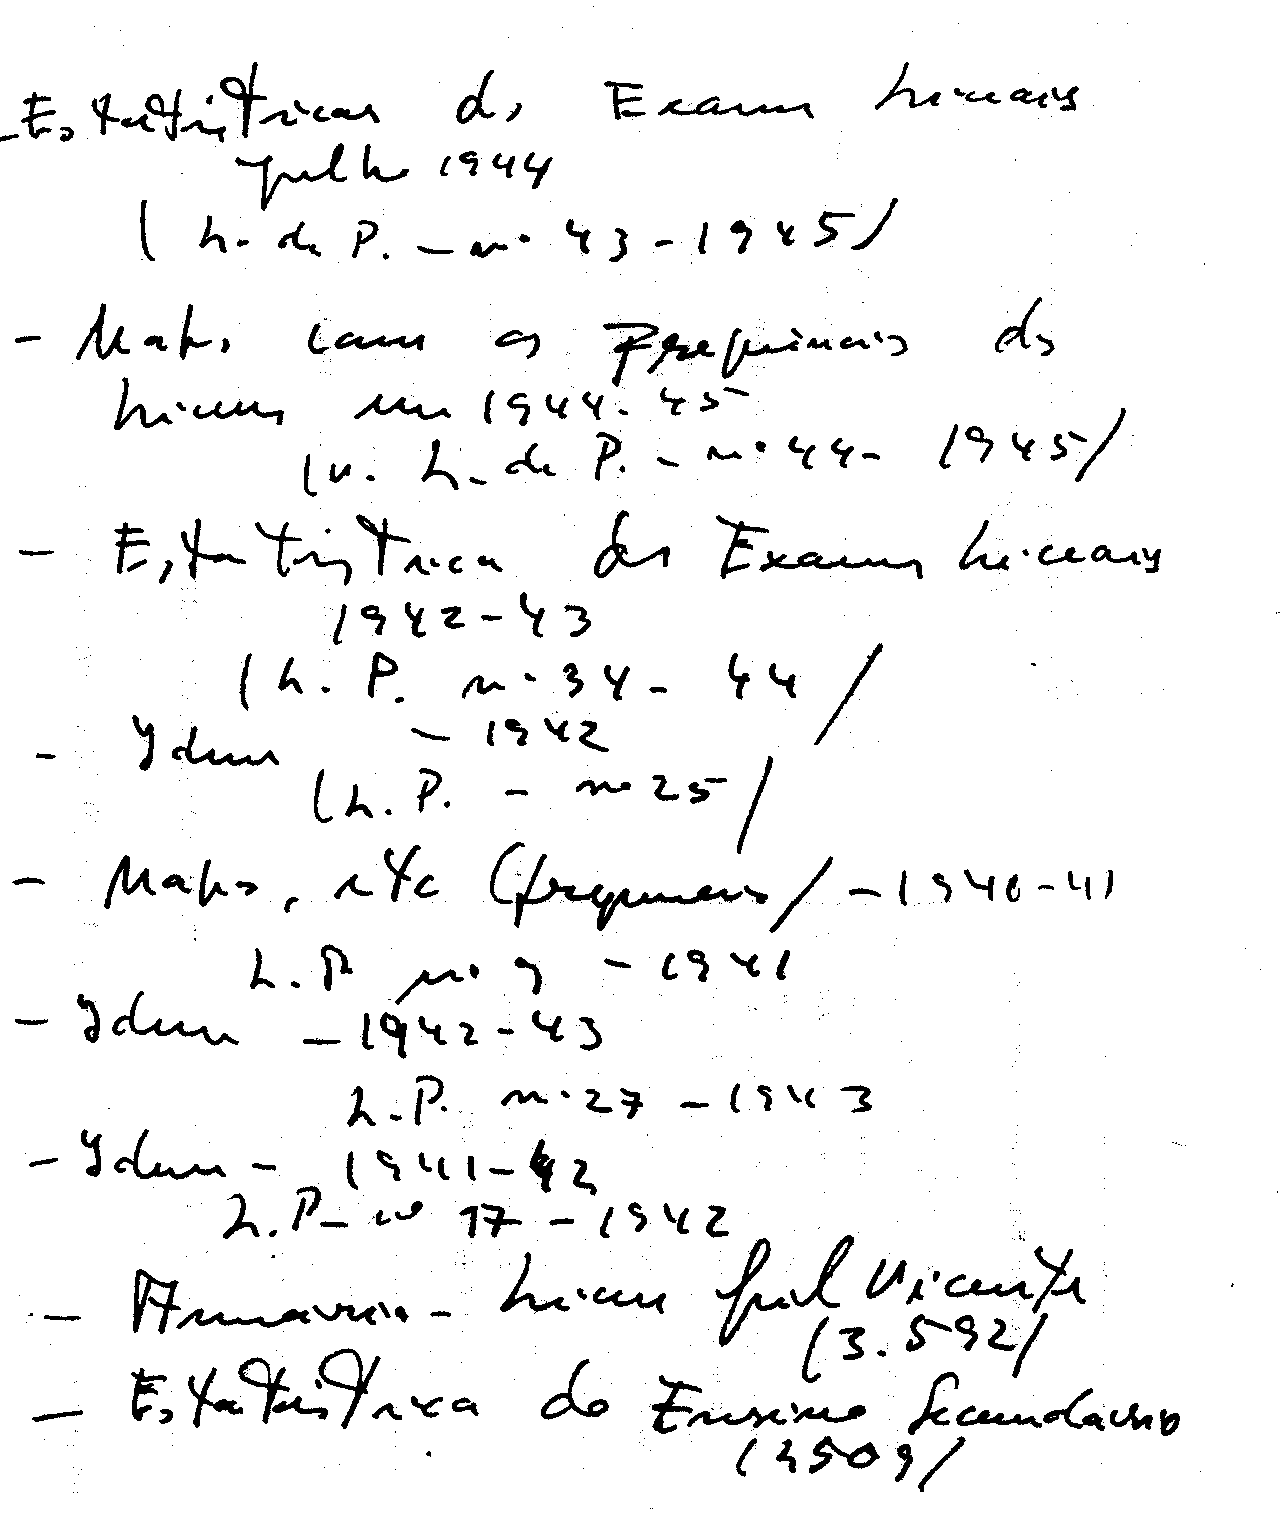 - Estatísticas ds Exames liceais
julho 1944
(L. de P. - nº 43 - 1945)
- Mapas com as frequências ds
liceus em 1944-45
(v. L. de P. - nº 44 - 1945)
- Estatística dos Exames Liceais
1942-43
(L. P. nº 34 - 44)
- Idem - 1942
(L. P. - nº 25)
- Mapas, etc (frequências) - 1940-41
L. P nº 9 - 1941
- Idem - 1942-43
L. P. nº 27 - 1943
- Idem - 1941-42
L. P - nº 17 - 1942
- Anuário - Liceu Gil Vicente
(3.592)
- Estatística do Ensino Secundário
(3509)